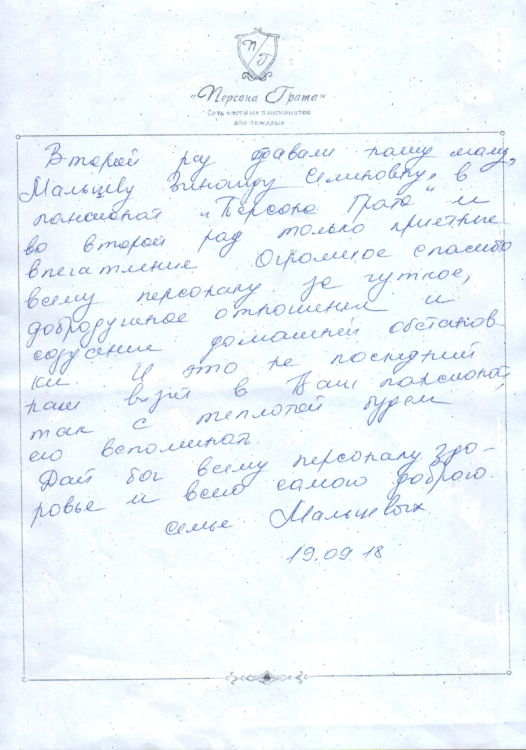 ПГ
«Персона Грата»
Сеть частных пансионатов
для пожилых
Второй раз сдавали нашу маму,
Мальцеву Зинаиду Семеновну, в
пансионат „Персона Грата" и
во второй раз только приятные
впечатление. Огромное спасибо
всему персоналу за чуткое,
добродушное отношение и
создание домашней обстанов-
ки. И это не последний
наш визит в Ваш пансионат,
так с теплотой будем
его вспоминать.
Дай бог всему персоналу здо-
ровье и всего самого доброго.
семье Мальцевых
19.09.18